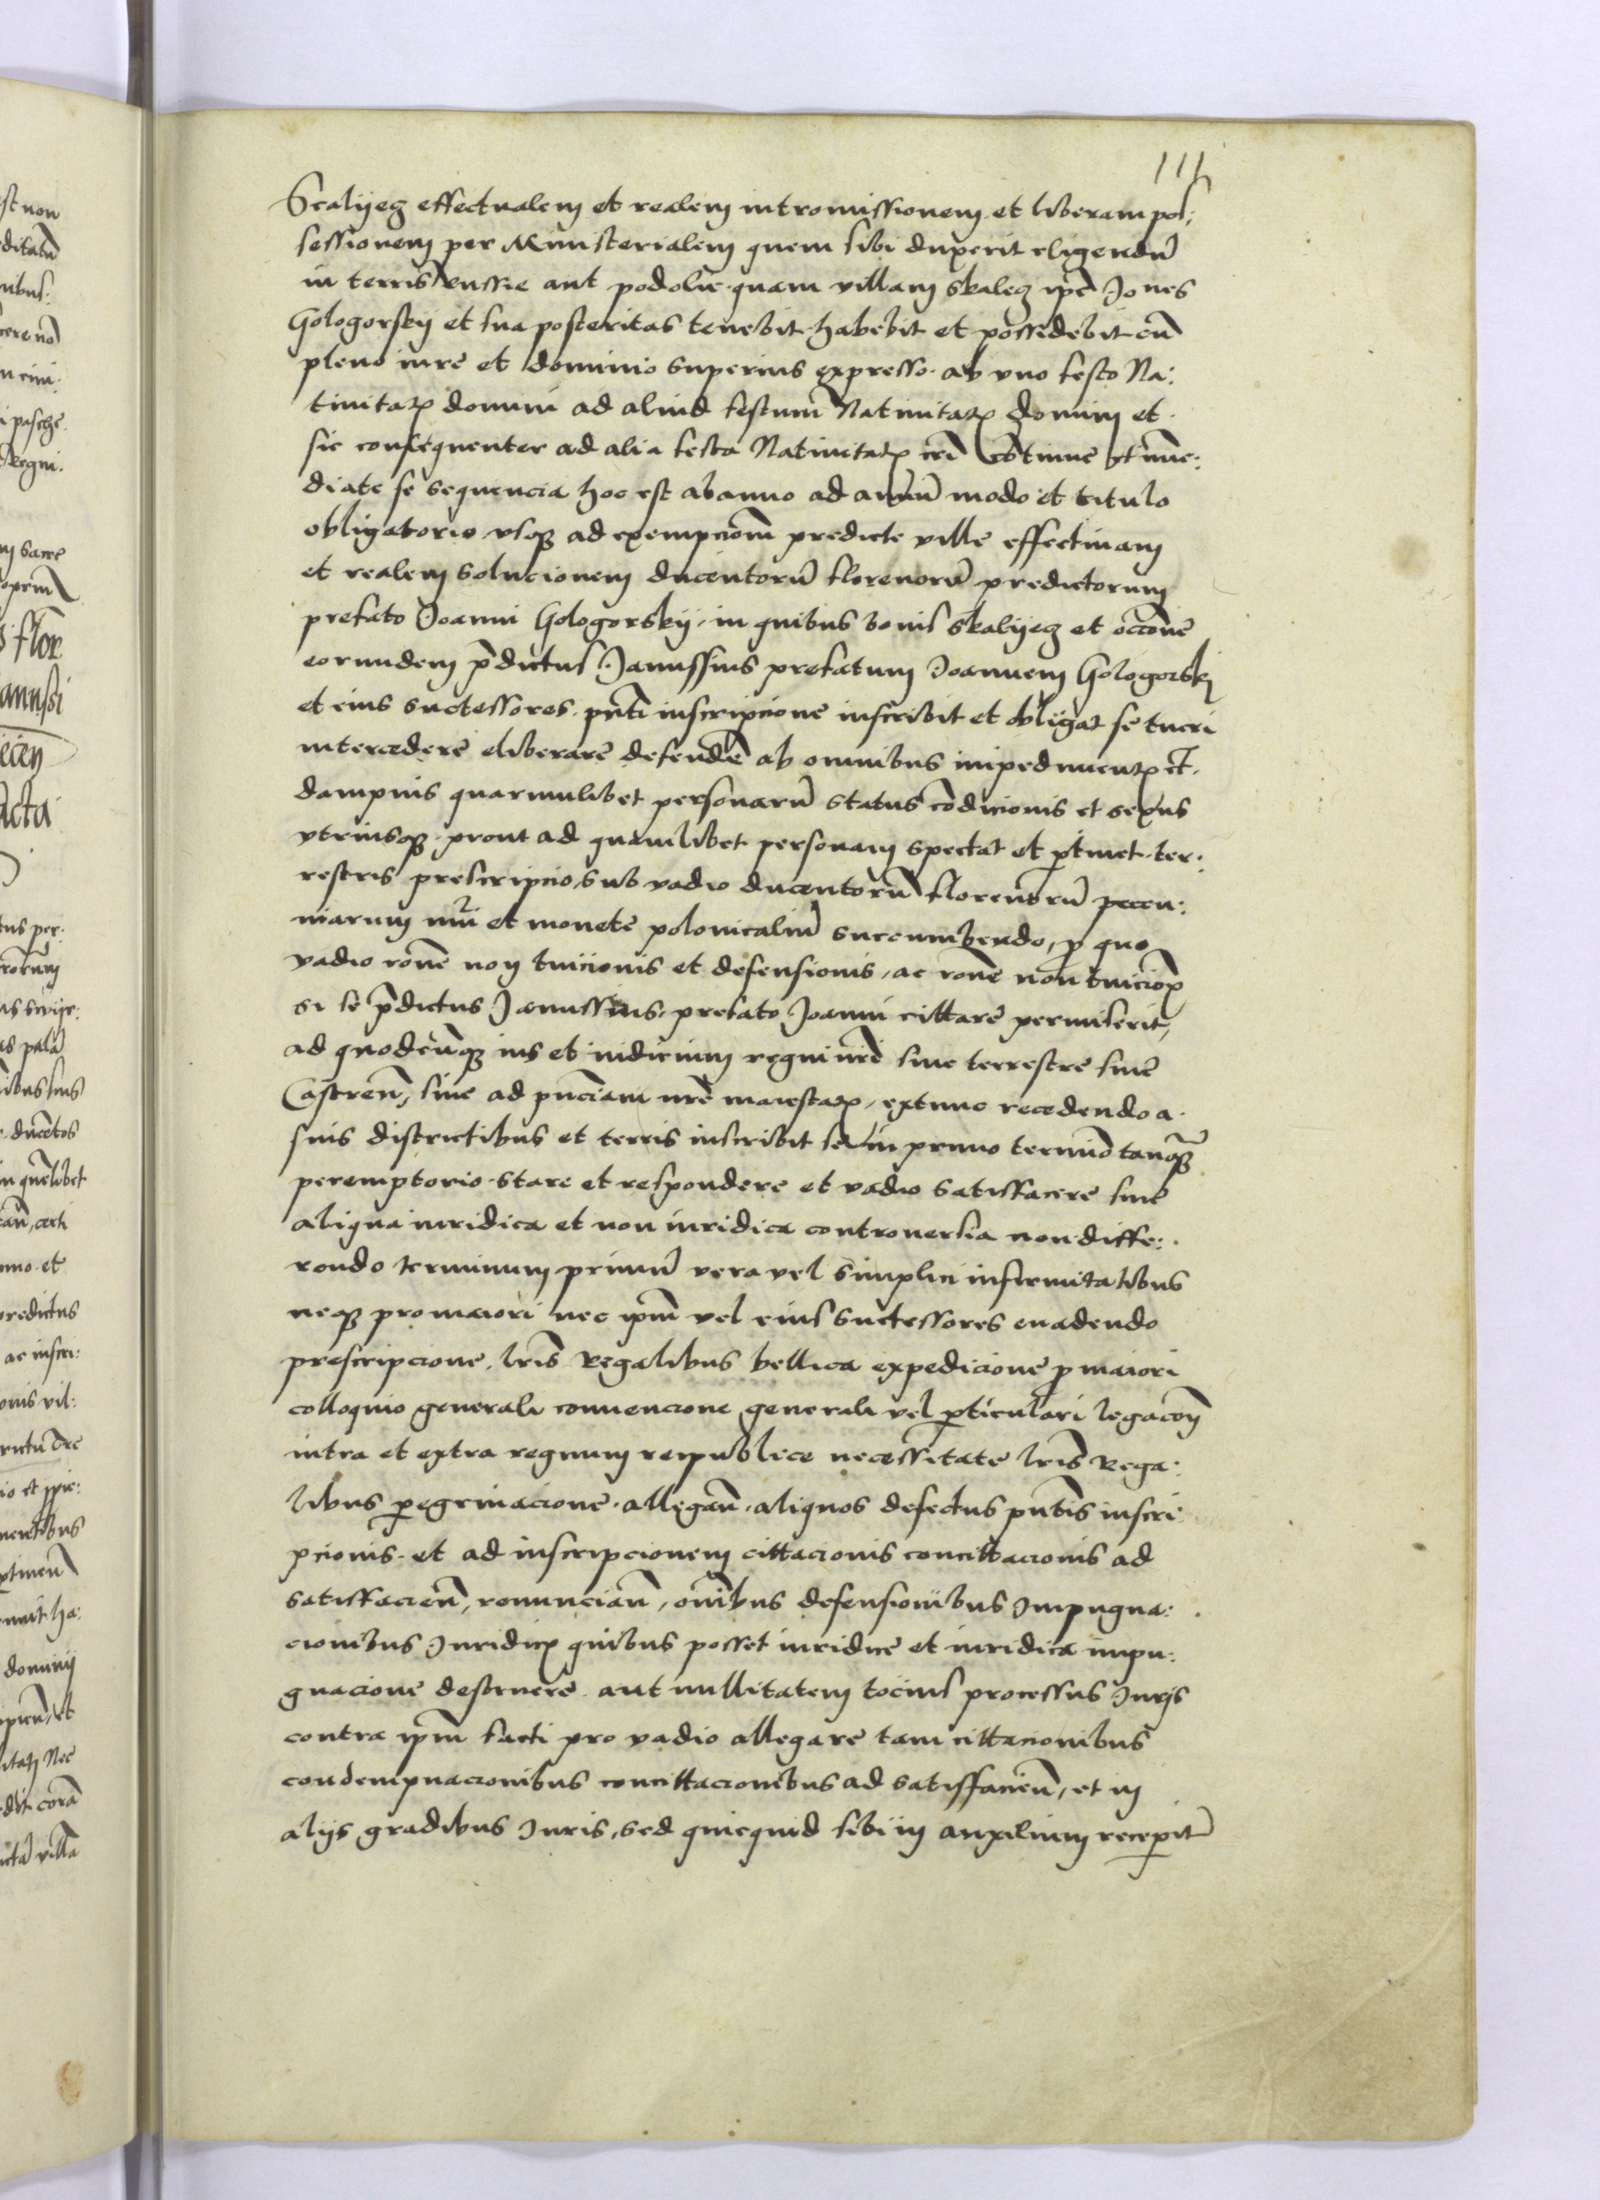 111
Scalyecz effectualem et realem intromissionem et liberam pos:
sessionem per Ministerialem quem sibi duxerit eligendū
in terris Russie aut podolie quam villam skalecz ipē Joānes
Gologorskÿ et sua posteritas tenebit habebit et possedebit cū
pleno iure et dominio superius expresso ab vno festo Na:
tiuitatꝫ domini ad aliud festum Natiuitatꝫ domini et
sic consequenter ad alia festa Natiuitatꝫ cōtinue et īme:
diate se sequencia hoc est ab anno ad annū modo et titulo
obligatorio vsqꝫ ad exempcionē predicte ville effectiuam
et realem solucionem ducentorū florenorū predictorum
prefato Joanni Gologorskÿ in quibus bonis skalÿecz et occōne
eorundem p̄dictus Janussius prefatum Joannem Gologorskj
et eius successores pn̄ti inscripcione inscribit et obligat se tueri
intercedere eliberare defendē ab omnibus impedimentꝫ et
dampnis quarumlibet personarū status cōdicionis et sexus
vtriusqꝫ prout ad quamlibet personam spectat et ꝑtinet ter:
restris prescripcio, sub vadio ducentorū florenorū pecu:
niarum nūi et monete polonicaliū succumbendo, ꝓ quo
vadio rōne non tuicionis et defensionis, ac rōne non tuicioꝫ
si se p̄dictus Janussius prefato Joanni cittare permiserit,
ad quodcūqꝫ ius et iudicium regni nr̄i siue terrestre siue
Castren̄, siue ad pn̄ciam nr̄e maiestatꝫ, extunc recedendo a
suis districtibus et terris inscribit se in primo termino tanqꝫ
peremptorio stare et respondere et vadio satisfacere sine
aliqua iuridica et non iuridica controuersia non diffe:
rendo terminum primū vera vel simplici infirmitatibus
neqꝫ pro maiori nec ipm̄ vel eius successores euadendo
prescripcione, lr̄is Regalibus bellica expedicione ꝓ maiori
colloquio generali conuencione generali vel ꝑticulari legacōn
intra et extra regnum reipublice necessitate lr̄is Rega:
libus ꝑegrinacione allegan̄ aliquos defectus pn̄tis inscri
pcionis et ad inscripcionem cittacionis concittacionis ad
satisfacien̄, renuncian̄, om̄ibus defensionibus Impugna:
cionibus Juridicꝫ quibus posset iuridice et iuridica impu:
gnacione destruere aut nullitatem tocius processus Juris
contra ipm̄ facti pro vadio allegare tam cittacionibus
condempnacionibus concittacionibus ad satisfacien̄, et in
alijs gradibus Juris, sed quicquid sibi in auxilium receperit